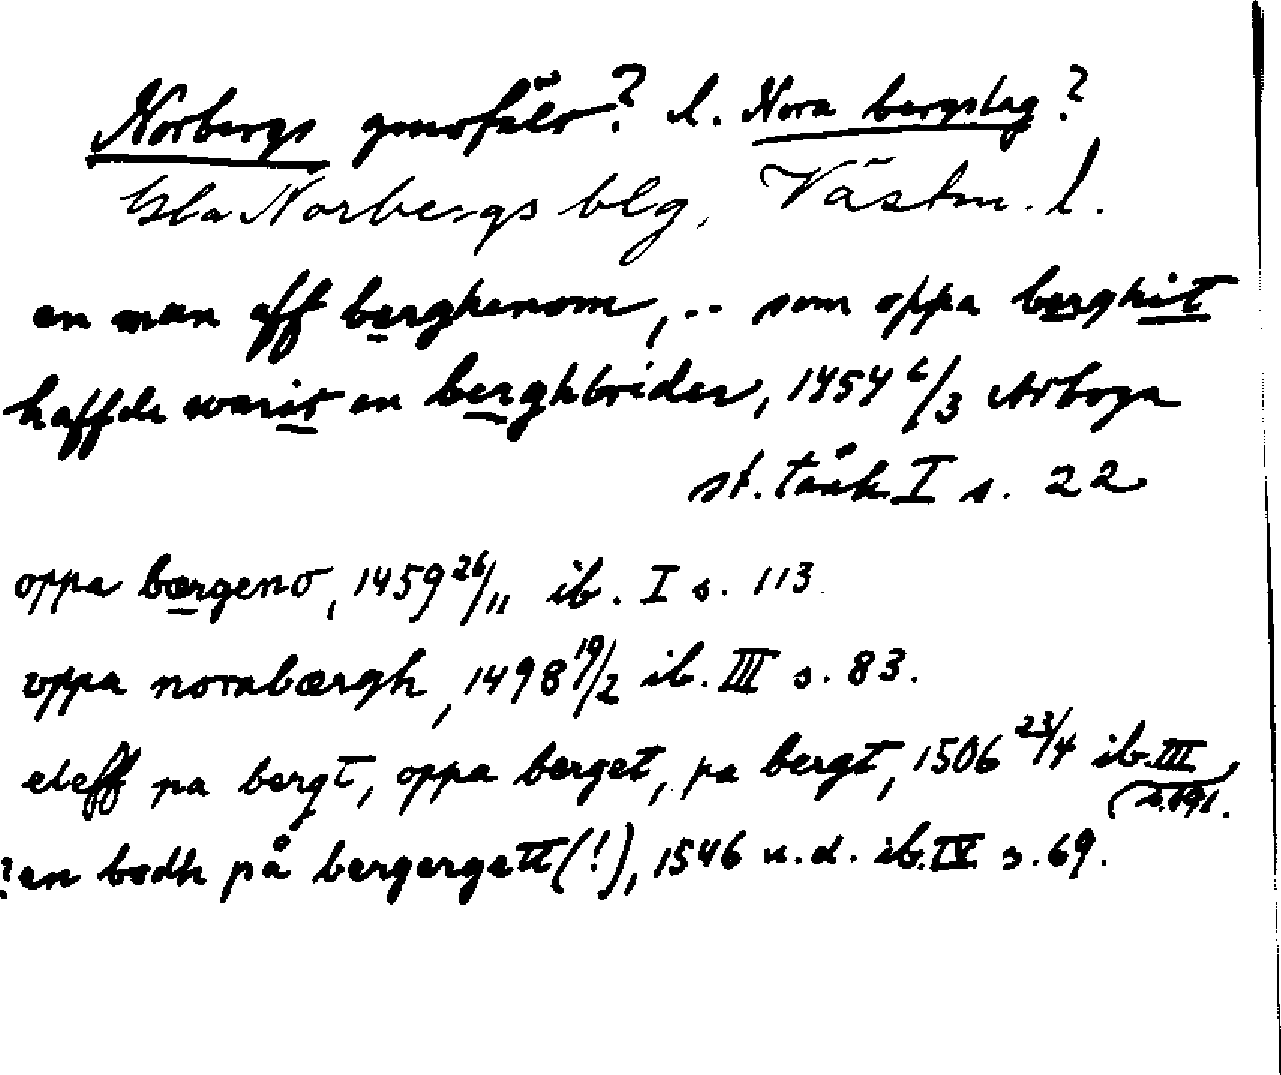 Norbergs gruvfält? l. Nora bergslag?
Gla Norbergs blg, Västm. l.
en man aff berghenom, .. som oppa berghit
haffde warit en berghbrider, 1454 6/3 Arboga
st. tänk I s. 22
oppa bærgeno, 1459 26/11 ib. I s. 113.
oppa norabærgh, 1498 19/2 ib. III s. 83.
eleff pa bergt, oppa berget, pa bergt, 1506 23/4 ib. III,
s. 191.
? en bodh på bergergett (!), 1546 u.d. ib. IV s. 69.